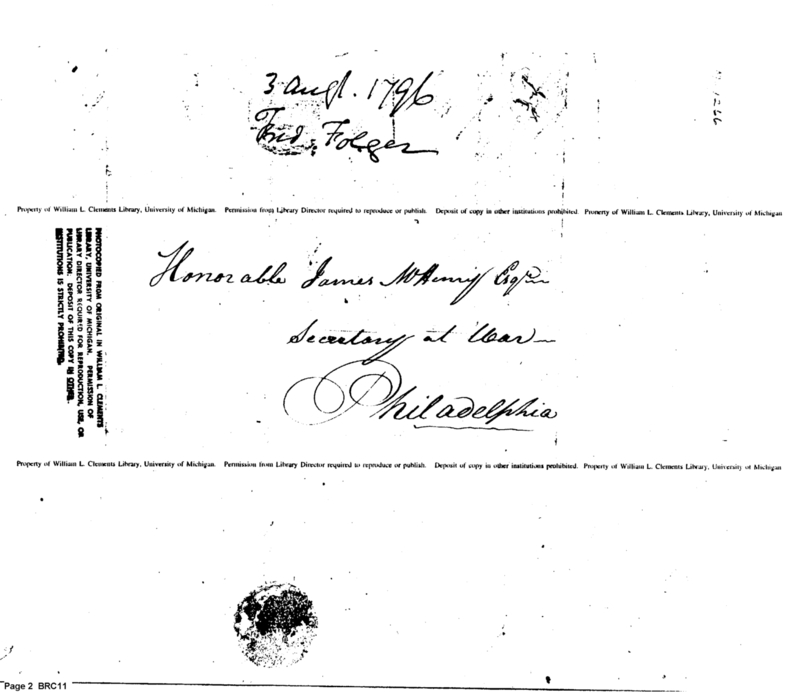 3 Augt. 1796
Fred: Folger
Property of William L. Clements Library, University of Michigan. Permission from Library Director required to reproduce or publish. Deposit of copy in other institutions prohibited. Property of William L. Clements Library, University of Michigan
PHOTOCOPIED FROM ORIGINAL IN WILLIAM L. CLEMENTS
LIBRARY, UNIVERSITY OF MICHIGAN. PERMISSION OF
LIBRARY DIRECTOR REQUIRED FOR REPRODUCTION, USE, OR
PUBLICATION. DEPOSIT OF THIS COPY IN OTHER
INSTITUTIONS IS STRICTLY PROHIBITED.
Honorable James McHenry Esqr
Secretary at War
Philadelphia
Property of William L. Clements Library, University of Michigan. Permission from Library Director required to reproduce or publish. Deposit of copy in other institutions prohibited. Property of William L. Clements Library, University of Michigan
Page 2 BRC11